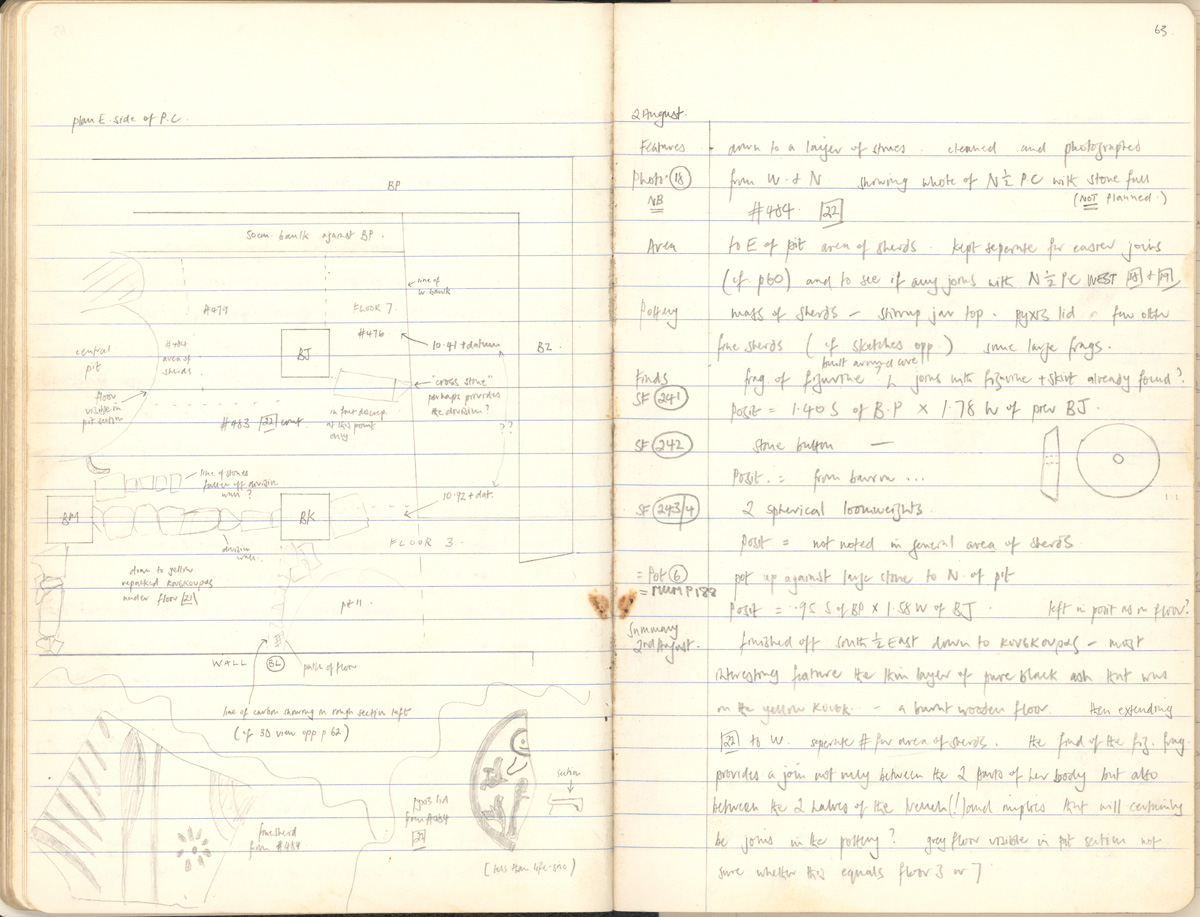 plan E. side of P.C.
BP
50cm. baulk against BP.
line of
W baulk
#479
FLOOR 7.
#476
10.41 + datum
BZ.
central
pit
#484
area of
sherds
BJ
"cross stone"
perhaps provides
the division?
floor
visible in
pit section
#483 [22] cont.
in fact discrep.
at this point
only
??
line of stones
fallen off division
wall?
10.92 + dat.
BM
BK
division
wall.
FLOOR 3.
down to yellow
repacked KOUSKOUPAS
under floor [21]
pt 11.
WALL
BL
patch of floor
line of carbon showing in rough section left
(cf 3D view opp p 62)
fine sherd
from #484
pyxis lid
from #484
[22]
section
(less than life-size)
63.
2 August.
Features - down to a layer of stones. cleaned and photographed
Photo. (18) from W. & N showing whole of N½ PC with stone full
NB (NOT planned.)
#484. [22]
Area to E of pit area of sherds. kept seperate for easier joins
(cf. p60) and to see if any joins with N½ PC WEST [18] & [19]
Pottery mass of sherds – stirrup jar top. pyxis lid a few other
fine sherds (cf sketches opp.) some large frags.
built around core
Finds frag. of figurine joins with figurine + skirt already found?
SF (241) Posit = 1.40 S of B.P × 1.78 W of prev BJ.
SF (242) stone button —
Posit. = from barrow ...
SF (243/4) 2 spherical loomweights.
Posit = not noted in general area of sherds
= Pot (6) pot up against large stone to N. of pit
= NMP188
Posit = .95 S of BP × 1.58 W of BJ. left in posit as on floor?
Summary
2nd August. finished off south ½ East down to KOUSKOUPAS – most
interesting feature the thin layer of pure black ash that was
on the yellow KOUSK. – a burnt wooden floor. then extending
[22] to W. seperate # for area of sherds. the find of the fig. frag.
provides a join not only between the 2 parts of her body but also
between the 2 halves of the trench(!!) and implies that will certainly
be joins in the pottery? grey floor visible in pit section not
sure whether this equals floor 3 or 7